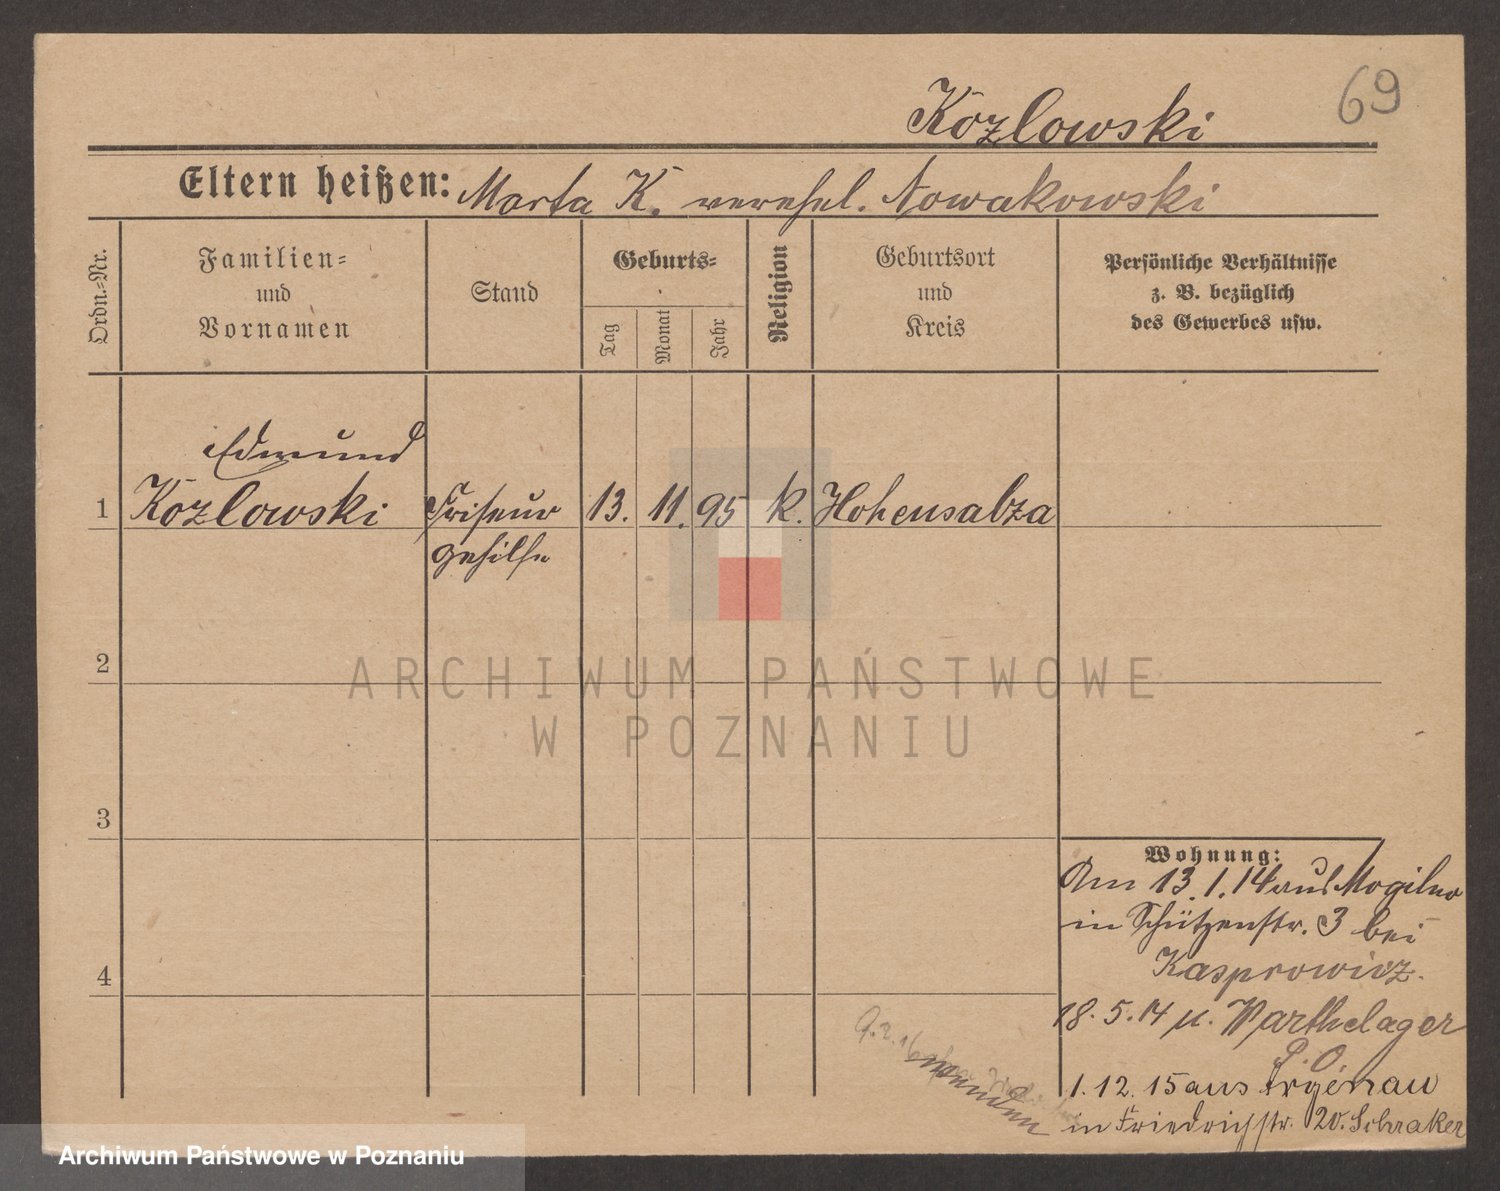 69
Kozlowski
Eltern heißen: Marta K. verehel. Nowakowski
Ordn.-Nr.
Familien-
und
Vornamen
Stand
Geburts-
Tag
Monat
Jahr
Religion
Geburtsort
und
Kreis
Persönliche Verhältnisse
z. B. bezüglich
des Gewerbes usw.
Edmund
1 Kozlowski Friseur 13. 11. 95 k. Hohensalza
gehilfe
2
3
4
Wohnung:
Am 13.1.14 aus Mogilno
in Schützenstr. 3 bei
Kasprowicz.
18.5.14 n. Warthelager
P. O.
1.12.15 aus Argenau
in Friedrichstr. 20. Schraker
9.2.16
ARCHIWUM PAŃSTWOWE
W POZNANIU
Archiwum Państwowe w Poznaniu